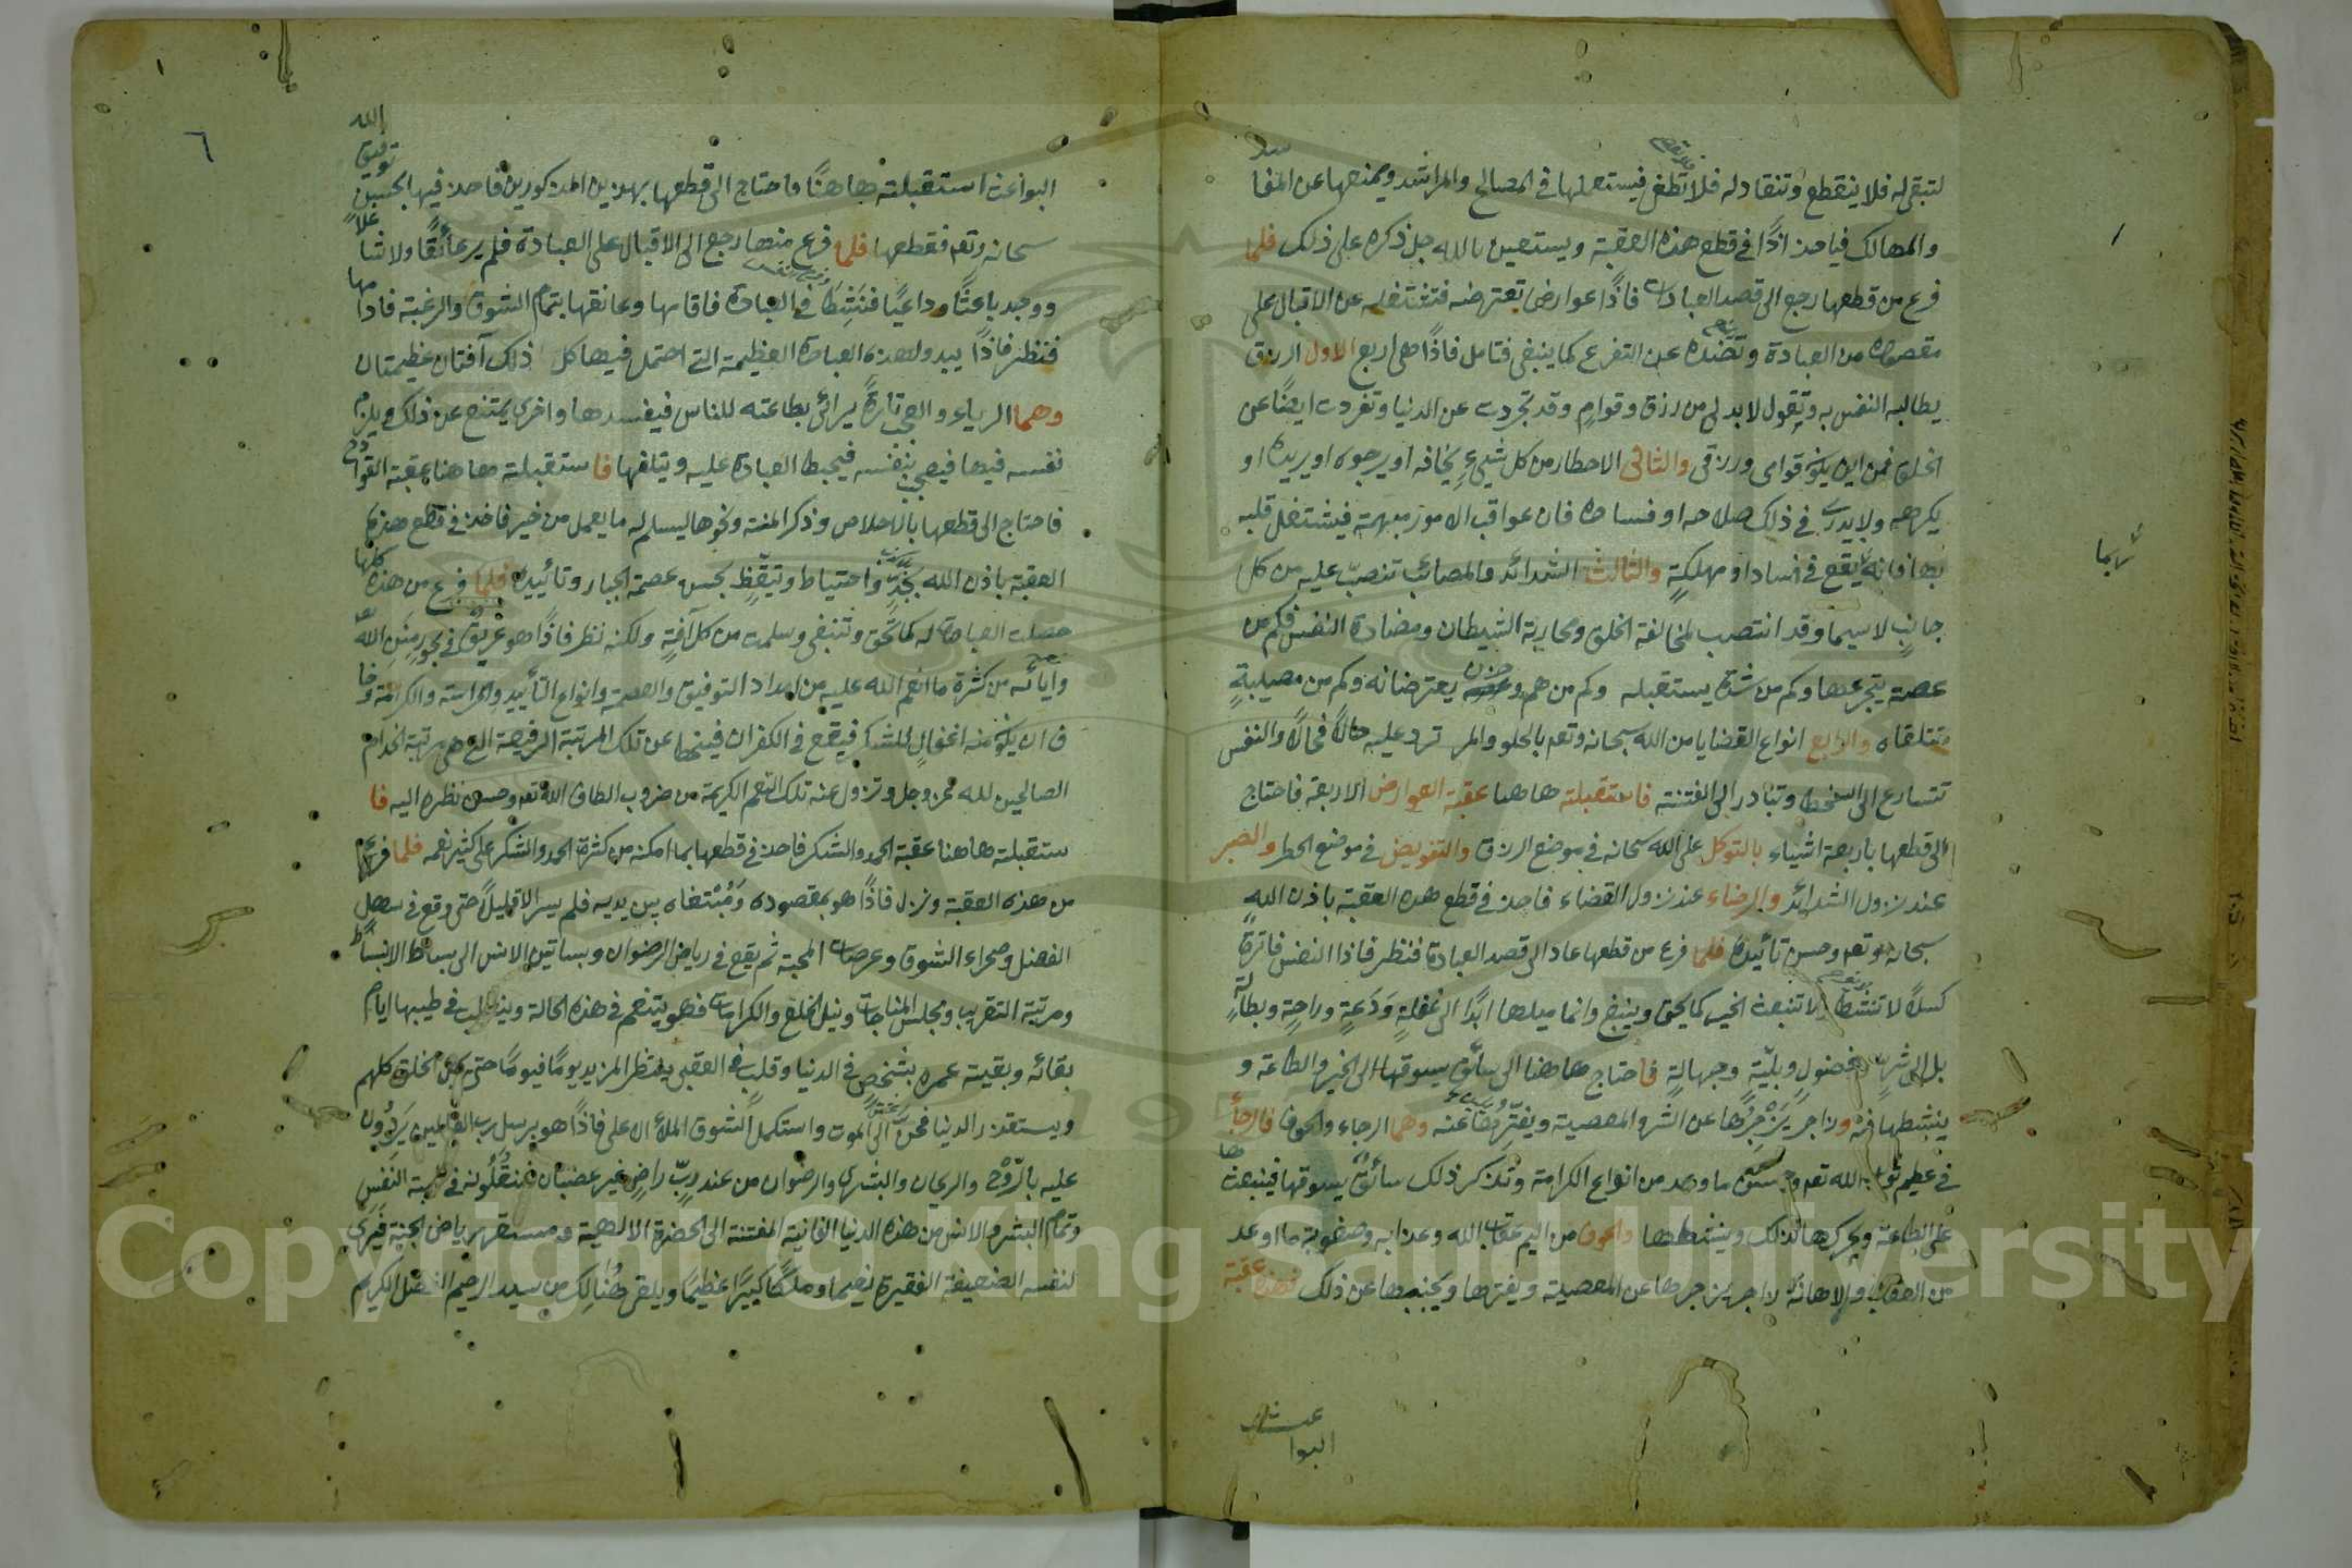 لتبقى له فلا ينقطع وتنقاد له فلا تطغى فيستعملها في المصالح والمراشد ويمنعها عن المفا
سد
والمهالك فياخذ اذًا في قطع هذه العقبة ويستعين بالله جل ذكره على ذلك فلما
فرغ من قطعها رجع الى قصد العبادات فاذًا عوارض تعترضه فتشغله عن الاقبال على
مقصوده من العبادة وتصده عن التفرغ كما ينبغي فتامل فاذًا هي اربع الاول الرزق
يطالبه النفس به وتقول لا بد لي من رزق وقوام وقد تجردت عن الدنيا وتفردت ايضًا عن
الخلق فمن اين يكون قوامى ورزقى والثانى الاخطار من كل شيئ يخافه او يرجوه او يريده او
يكرهه ولا يدرى في ذلك صلاحه او فساده فان عواقب الامور مبهمة فيشتغل قلبه
بها فانه يقع في فساد او مهلكةٍ والثالث الشدائد والمصائب تنصبّ عليه من كل
جانبٍ لا سيما وقد انتصب لمخالفة الخلق ومحاربة الشيطان ومضادة النفس فكم من
غصة يتجرعها وكم من شدة يستقبله وكم من هم وحزن يعترضانه وكم من مصيبةٍ
تتلقاه والرابع انواع القضايا من الله سبحانه وتعه بالحلو والمر ترد عليه حالاً فحالاً والنفس
تتسارع الى السخط وتبادر الى الفتنة فاستقبلته هاهنا عقبة العوارض الاربعة فاحتاج
الى قطعها باربعة اشياء بالتوكل على الله سبحانه في موضع الرزق والتفويض في موضع الخطر والصبر
عند نزول الشدائد والرضاء عند نزول القضاء فاخذ في قطع هذه العقبة باذن الله
سبحانه وتعه وحسن تأييده فلما فرغ من قطعها عاد الى قصد العبادة فنظر فاذا النفس فاترة
كسلاً لا تنشط ولا تنبعث الخير كما يحق وينبغي وانما ميلها ابدًا الى غفلةٍ وَدَعَةٍ وراحةٍ وبطالةٍ
بل الى شرٍ وفضولٍ وبليّةٍ وجهالةٍ فاحتاج هاهنا الى سائق يسوقها الى الخير والطاعة و
ينشطها فيه وزاجر يَزْجِرُها عن الشر والمعصية ويفترها عنه وهما الرجاء والخوف فالرجأ
في عظيم ثواب الله تعه وحسن ما وعد من انواع الكرامة وتذكر ذلك سائق يسوقها فيبعث
ها
على الطاعة ويحركها لذلك وينشطها والخوف من اليم عقاب الله وعذابه وصعوبة ما اوعد
من العقاب والاهانة زاجر يزجرها عن المعصية ويفترها ويجنبها عن ذلك فهذه عقبة
عث
البوا
٦
الله
توفيق
البواعث استقبلته هاهنًا فاحتاج الى قطعها بهذين المذكورين فاخذ فيها بحسن
سبحانه وتعه فقطعها فلما فرغ منها رجع الى الاقبال على العبادة فلم ير عائقًا ولا شا
غلاً
ووجد باعثًا وداعيًا فنَشِطَ في العبادة فاقامها وعانقها بتمام الشوق والرغبة فادا
مها
فنظر فاذًا يبدو لهذه العبادة العظيمة التي احتمل فيها كل ذلك آفتان عظيمتان
وهما الرياء والعجب تارةً يرائى بطاعته للناس فيفسدها واخرى يمتنع عن ذلك ويلزم
نفسه فيها فيعجب بنفسه فيحبط العبادة عليه ويتلفها فاستقبلته هاهنا عقبة القوا
دح
فاحتاج الى قطعها بالاخلاص وذكر المنة ونحوها ليسلم له ما يعمل من خير فاخذ في قطع هذه
العقبة باذن الله بجدٍّ واحتياط وتيقّظٍ بحسن عصمة الجبار وتأييده فلما فرغ من هذه كلها
حصلت العبادة له كما تحق وتنبغى وسلمت من كل آفةٍ ولكنه نظر فاذًا هو غريق في بحور مِنَنِ الله تعه
وأيائه من كثرة ما انعم الله عليه من امداد التوفيق والعصمة وانواع التأييد والحراسة والكرامة وخا
ف ان يكون منه اغفالٍ للشكر فيقع في الكفران فينحط عن تلك المرتبة الرفيعة التي هي مرتبة الخدام
الصالحين لله عز وجل وتزول عنه تلك النعم الكريمة من ضروب الطاف الله تعه وحسن نظره اليه فا
ستقبلته هاهنا عقبة الحمد والشكر فاخذ في قطعها بما امكنه من كثرة الحمد والشكر على كثير نعمه فلما فرغ
من هذه العقبة ونزل فاذًا هو بمقصوده وَمُبْتغاه بين يديه فلم يسر الا قليلاً حتى وقع في سهل
الفضل وصحراء الشوق وعرصات المحبة ثم يقع في رياض الرضوان وبساتين الانس الى بساط الانبسا
ط
ومرتبة التقريب ومجلس المناجات ونيل الخلع والكرامات فهو يتنعم في هذه الحالة ويتقلب في طيبها ايام
بقائه وبقية عمره بشخصٍ في الدنيا وقلب في العقبى ينتظر المزيد يومًا فيومًا حتى يمل الخلق كلهم
ويستقذر الدنيا فحن الى الموت واستكمل الشوق الملأ الاعلى فاذًا هو برسل رب العالمين يَرِدُون
عليه بالرّوْح والريحان والبشرى والرضوان من عند ربّ راضٍ غير غضبان فينقُلُونه في طيبة النفس
وتمام البشر والانس من هذه الدنيا الفانية المفتنة الى الحضرة الالهية ومستقر رياض الجنة فيرى
لنفسه الضعيفة الفقيرة نعيما وملكًا كبيرًا عظيمًا ويلقى هُنالِكَ من سيده الرحيم المفضل الكريم